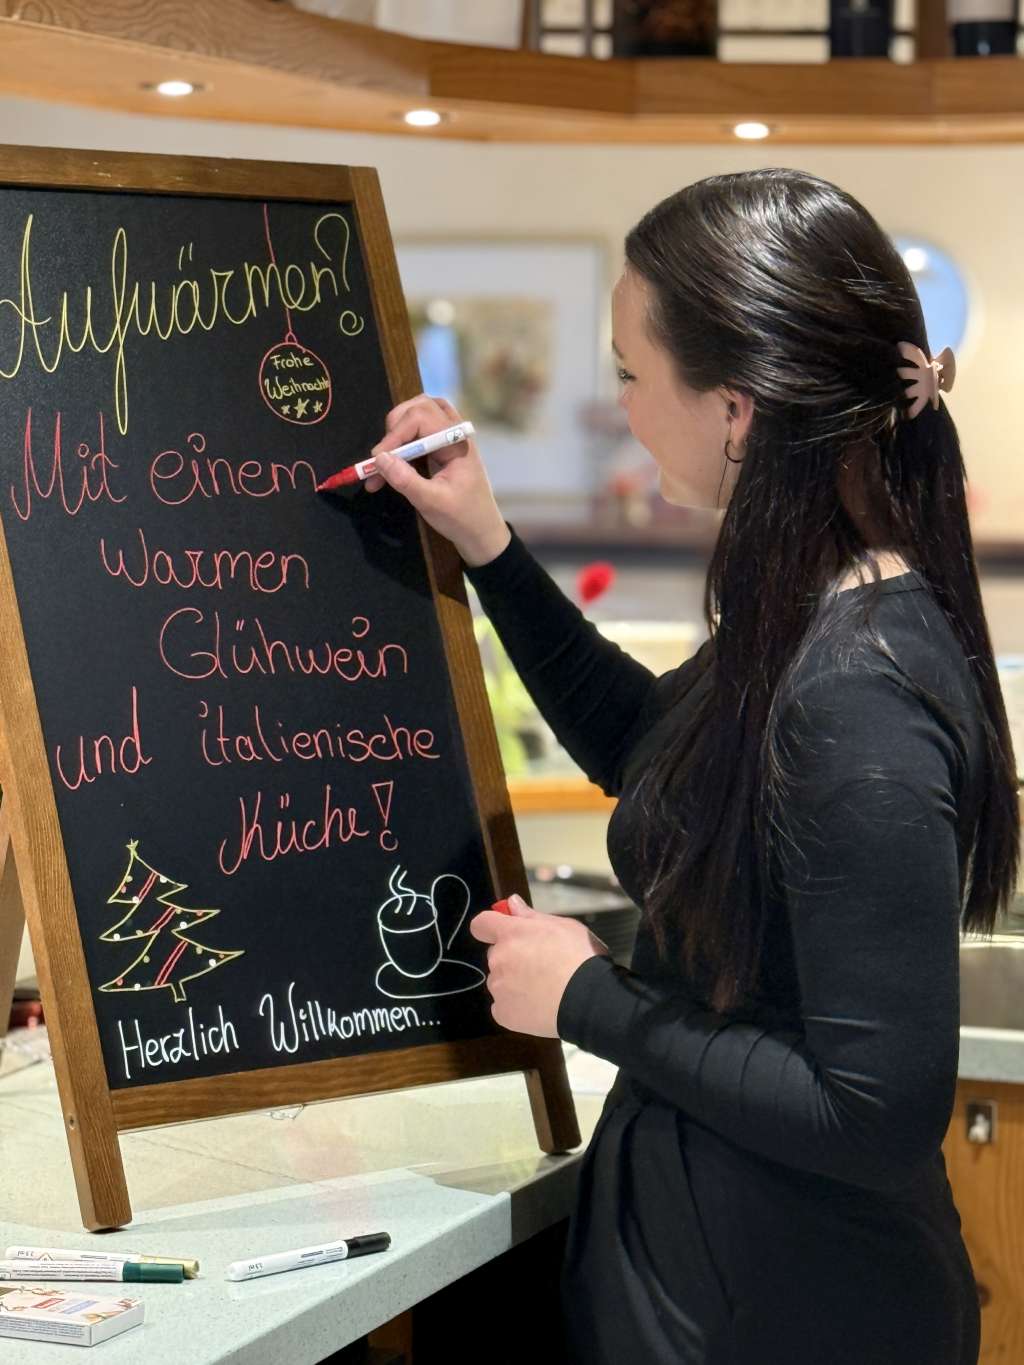 Aufwärmen?
Frohe
Weihnachten
Mit einem
warmen
Glühwein
und italienische
Küche!
Herzlich Willkommen...